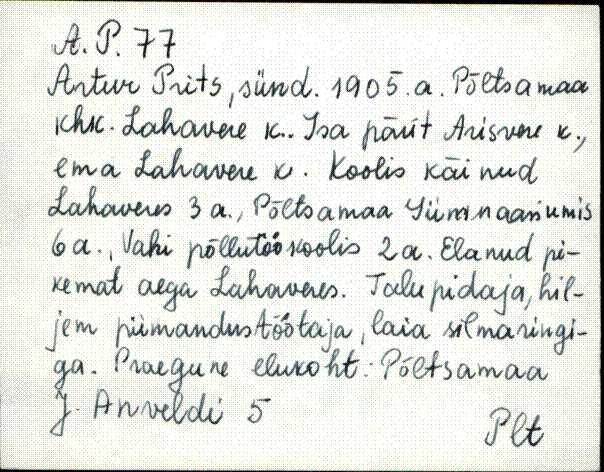 A. P. 77
Artur Prits, sünd. 1905. a. Põltsamaa
khk. Lahavere k.. Isa pärit Arisvere k.,
ema Lahavere k. Koolis käinud
Lahaveres 3 a., Põltsamaa Gümnaasiumis
6 a., Vahi põllutöökoolis 2 a. Elanud pi-
kemat aega Lahaveres. Talupidaja, hil-
jem piimandustöötaja, laia silmaringi-
ga. Praegune elukoht: Põltsamaa
J. Anveldi 5
Plt